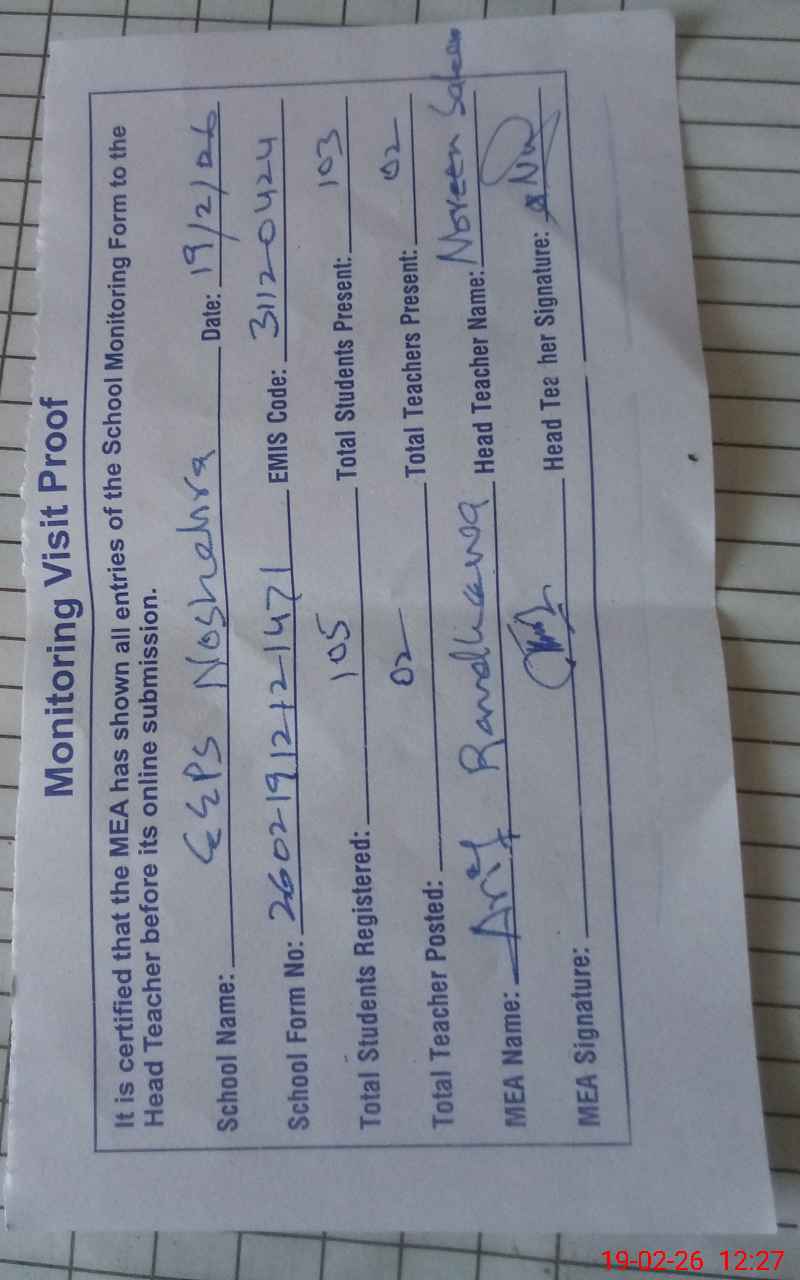 Monitoring Visit Proof
It is certified that the MEA has shown all entries of the School Monitoring Form to the
Head Teacher before its online submission.
School Name: GGPS Noshehra Date: 19/2/26
School Form No: 26021912121471 EMIS Code: 31120424
Total Students Registered: 105 Total Students Present: 103
Total Teacher Posted: 02 Total Teachers Present: 02
MEA Name: Arif Randhawa Head Teacher Name: Noreen
MEA Signature: Head Teacher Signature:
19-02-26 12:27